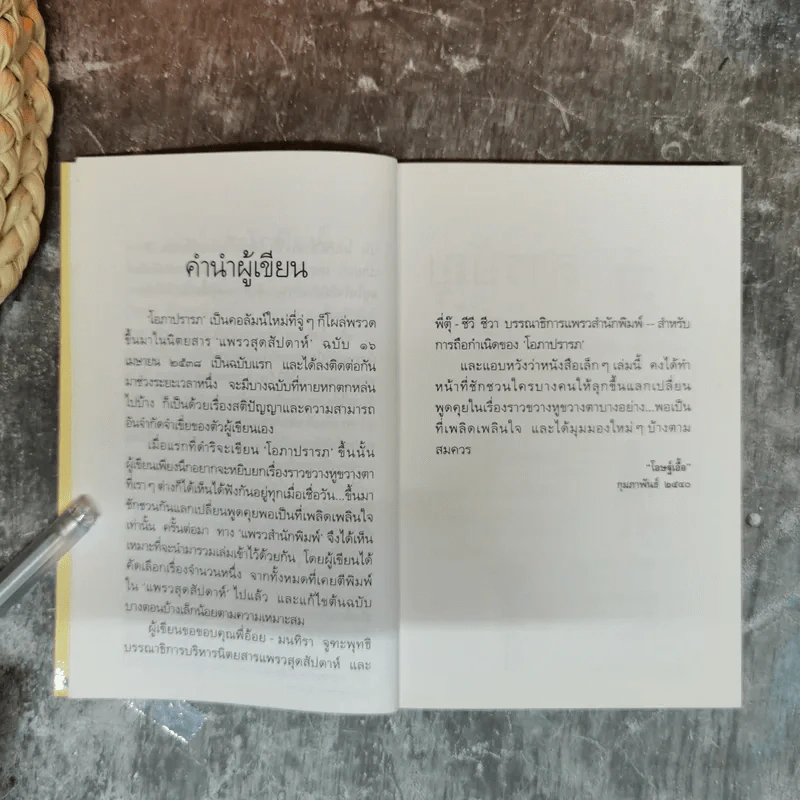 คำนำผู้เขียน
'โอภาปรารภ' เป็นคอลัมน์ใหม่ที่จู่ๆ ก็โผล่พรวด
ขึ้นมาในนิตยสาร 'แพรวสุดสัปดาห์' ฉบับ ๑๖
เมษายน ๒๕๓๘ เป็นฉบับแรก และได้ลงติดต่อกัน
มาช่วงระยะเวลาหนึ่ง จะมีบางฉบับที่หายหกตกหล่น
ไปบ้าง ก็เป็นด้วยเรื่องสติปัญญาและความสามารถ
อันจำกัดจำเขี่ยของตัวผู้เขียนเอง
เมื่อแรกที่ดำริจะเขียน 'โอภาปรารภ' ขึ้นนั้น
ผู้เขียนเพียงนึกอยากจะหยิบยกเรื่องราวขวางหูขวางตา
ที่เราๆ ต่างก็ได้เห็นได้ฟังกันอยู่ทุกเมื่อเชื่อวัน...ขึ้นมา
ชักชวนกันแลกเปลี่ยนพูดคุยพอเป็นที่เพลิดเพลินใจ
เท่านั้น ครั้นต่อมา ทาง 'แพรวสำนักพิมพ์' จึงได้เห็น
เหมาะที่จะนำมารวมเล่มเข้าไว้ด้วยกัน โดยผู้เขียนได้
คัดเลือกเรื่องจำนวนหนึ่ง จากทั้งหมดที่เคยตีพิมพ์
ใน 'แพรวสุดสัปดาห์' ไปแล้ว และแก้ไขต้นฉบับ
บางตอนบ้างเล็กน้อยตามความเหมาะสม
ผู้เขียนขอขอบคุณพี่อ้อย - มนทิรา จูฑะพุทธิ
บรรณาธิการบริหารนิตยสารแพรวสุดสัปดาห์ และ
พี่ตุ๊ - ชีวี ชีวา บรรณาธิการแพรวสำนักพิมพ์ -- สำหรับ
การถือกำเนิดของ 'โอภาปรารภ'
และแอบหวังว่าหนังสือเล็กๆ เล่มนี้ คงได้ทำ
หน้าที่ชักชวนใครบางคนให้ลุกขึ้นแลกเปลี่ยน
พูดคุยในเรื่องราวขวางหูขวางตาบางอย่าง...พอเป็น
ที่เพลิดเพลินใจ และได้มุมมองใหม่ๆ บ้างตาม
สมควร
"โอษฐ์เอื้อ"
กุมภาพันธ์ ๒๕๔๐